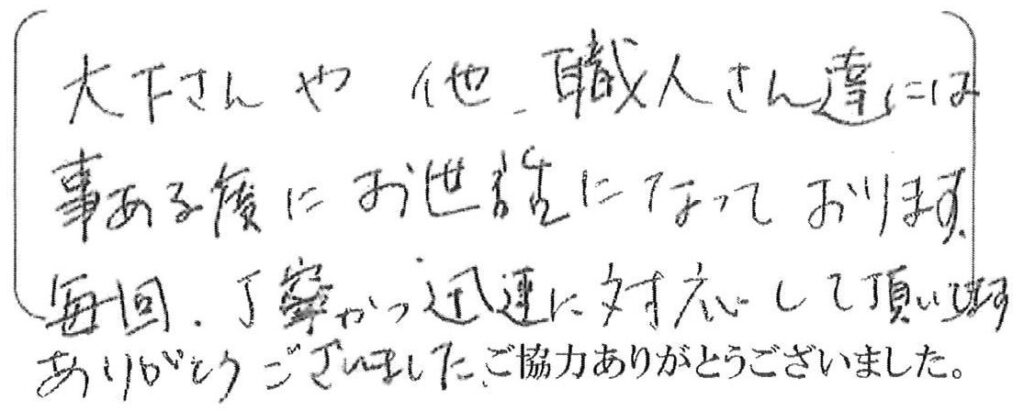 大下さんや他、職人さん達には
事ある度にお世話になっております。
毎回、丁寧かつ迅速に対応して頂いてます
ありがとうございました。ご協力ありがとうございました。